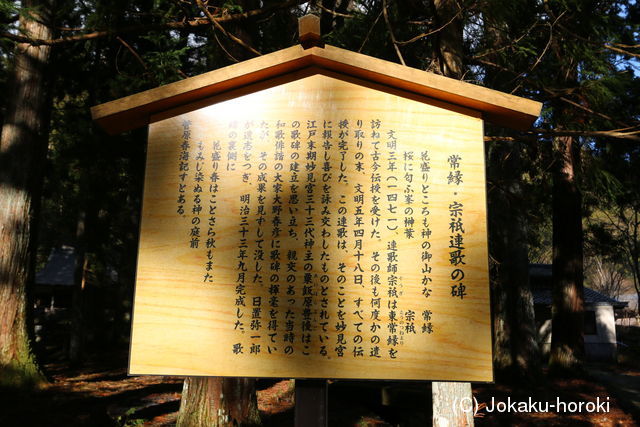 常縁・宗祇連歌の碑
花盛りところも神の御山かな　常縁
桜に匂ふ峯の榊葉　宗祇
文明三年(一四七一)、連歌師宗祇は東常縁を
訪ねて古今伝授を受けた。その後も何度かの遣
り取りの末、文明五年四月十八日、すべての伝
授が完了した。この連歌は、そのことを妙見宮
に報告し喜びを詠み交わしたものとされている。
江戸末期妙見宮三十三代神主の粟飯原豊後はこ
の歌碑の建立を思い立ち、親交のあった当時の
和歌俳諧の大家大野春彦に歌碑の揮毫を得てい
たが、その成果を見ずして没した。日置弥一郎
が遺志をつぎ、明治三十三年九月完成した。歌
碑の裏側に
花盛り春はことさら秋もまた
もみじ染ぬる神の庭前
菅原春海記すとある。
(C) Jokaku-horoki